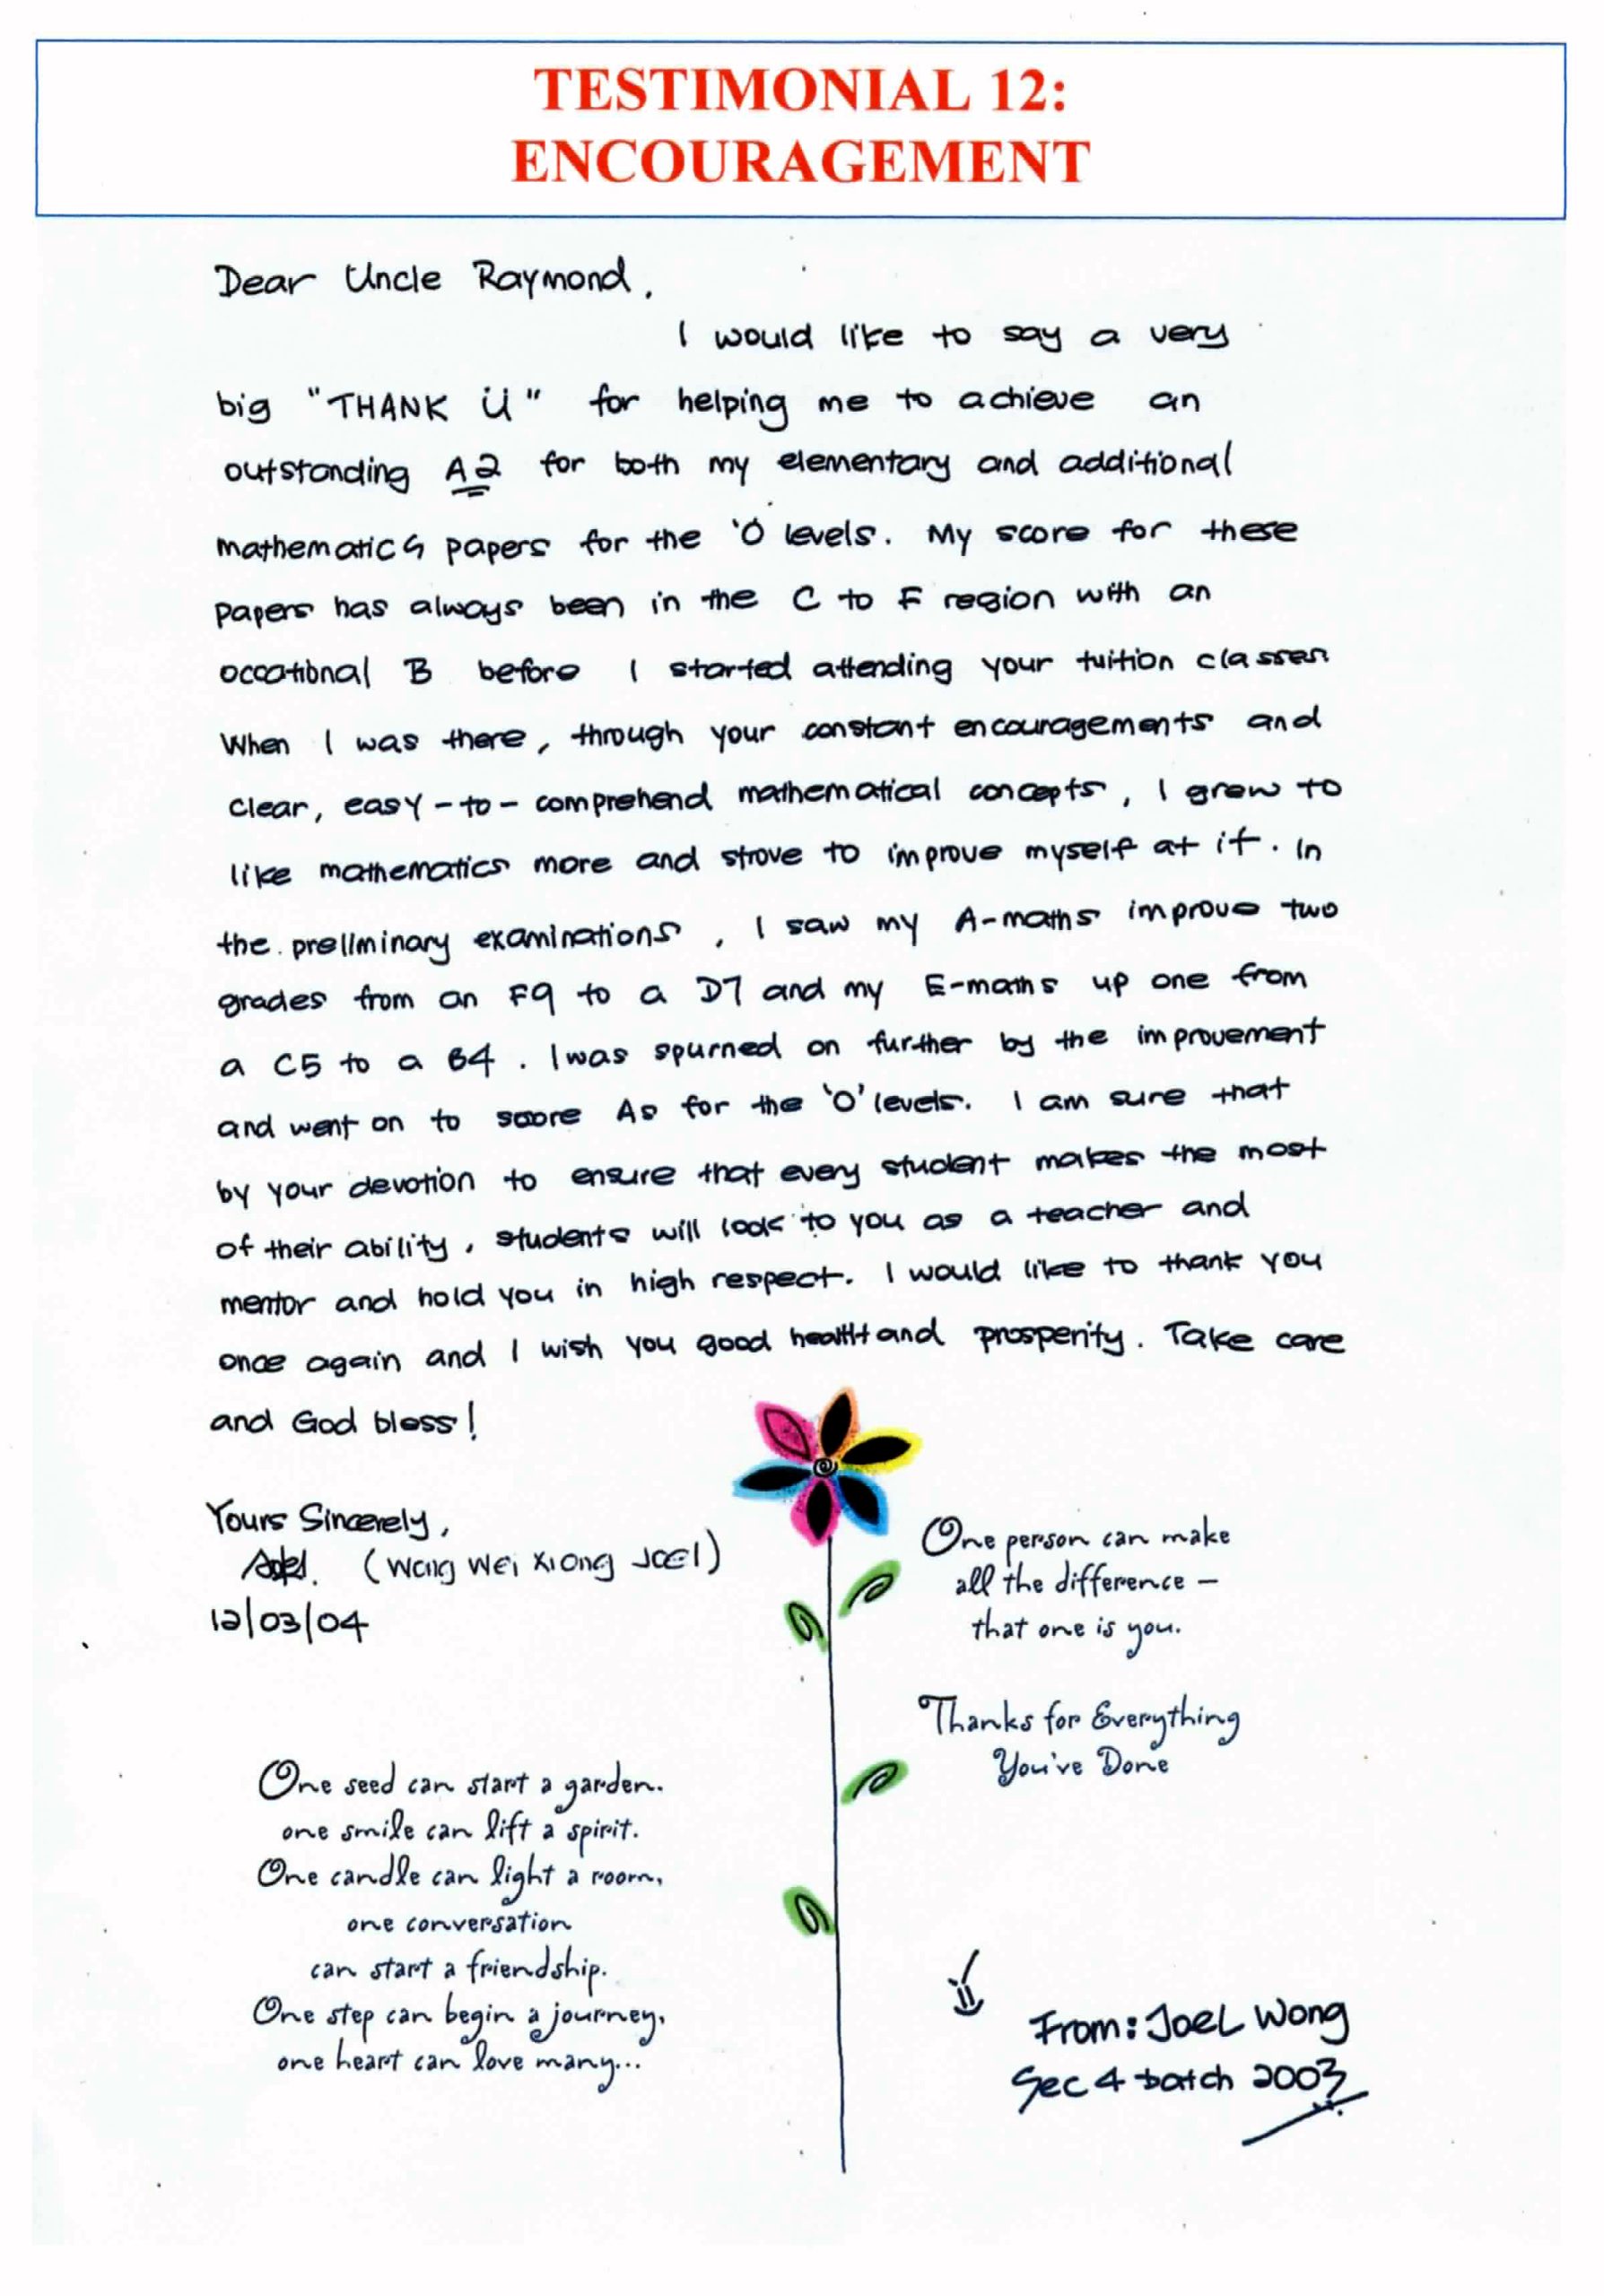 TESTIMONIAL 12:
ENCOURAGEMENT
Dear Uncle Raymond,
I would like to say a very
big "THANK Ü" for helping me to achieve an
outstanding A2 for both my elementary and additional
mathematics papers for the 'O levels. My score for these
papers has always been in the C to F region with an
occational B before I started attending your tuition classes.
When I was there, through your constant encouragements and
clear, easy-to-comprehend mathematical concepts, I grew to
like mathematics more and strove to improve myself at it. In
the preliminary examinations, I saw my A-maths improve two
grades from an F9 to a D7 and my E-maths up one from
a C5 to a B4. I was spurned on further by the improvement
and went on to score As for the 'O' levels. I am sure that
by your devotion to ensure that every student makes the most
of their ability, students will look to you as a teacher and
mentor and hold you in high respect. I would like to thank you
once again and I wish you good health and prosperity. Take care
and God bless!
Yours Sincerely,
(Wong Wei Xiong Joel)
12/03/04
One person can make
all the difference –
that one is you.
Thanks for Everything
You've Done
One seed can start a garden.
one smile can lift a spirit.
One candle can light a room,
one conversation
can start a friendship.
One step can begin a journey,
one heart can love many...
From: Joel Wong
Sec 4 batch 2003